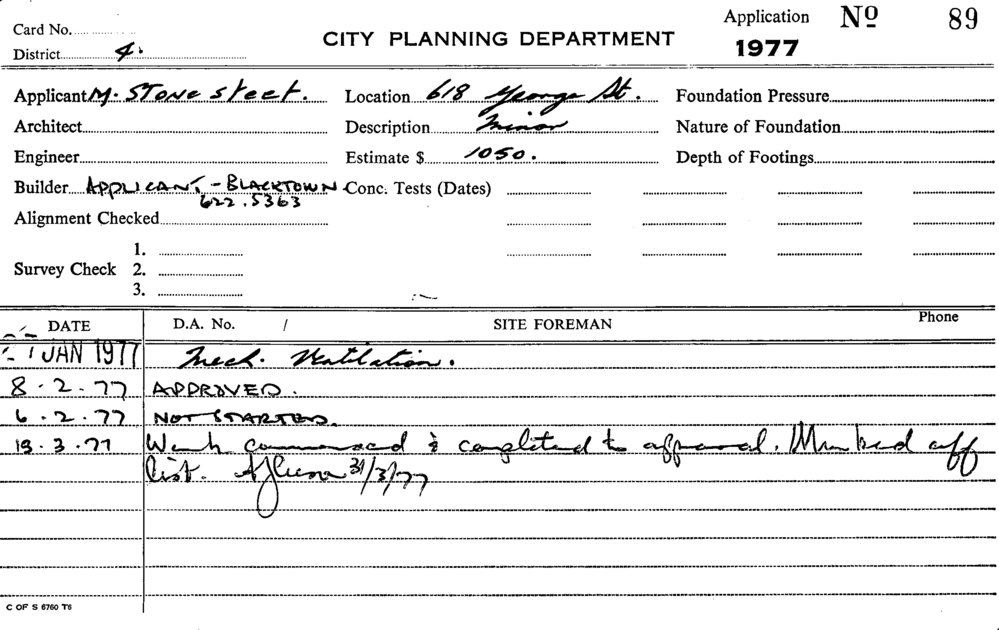 Card No.
Application No 89
District 4.
CITY PLANNING DEPARTMENT
1977
Applicant M. STONE Street. Location 618 George St. Foundation Pressure
Architect Description Minor Nature of Foundation
Engineer Estimate $ 1050. Depth of Footings
Builder APPLICANT, - BLACKTOWN Conc. Tests (Dates)
622.5363
Alignment Checked
1.
Survey Check 2.
3.
DATE D.A. No. / SITE FOREMAN Phone
JAN 1977 Mech. Ventilation.
8.2.77 APPROVED.
6.2.77 NOT STARTED.
19.3.77 Work commenced & completed to approval. Marked off
list. 31/3/77
C OF S 6760 T6